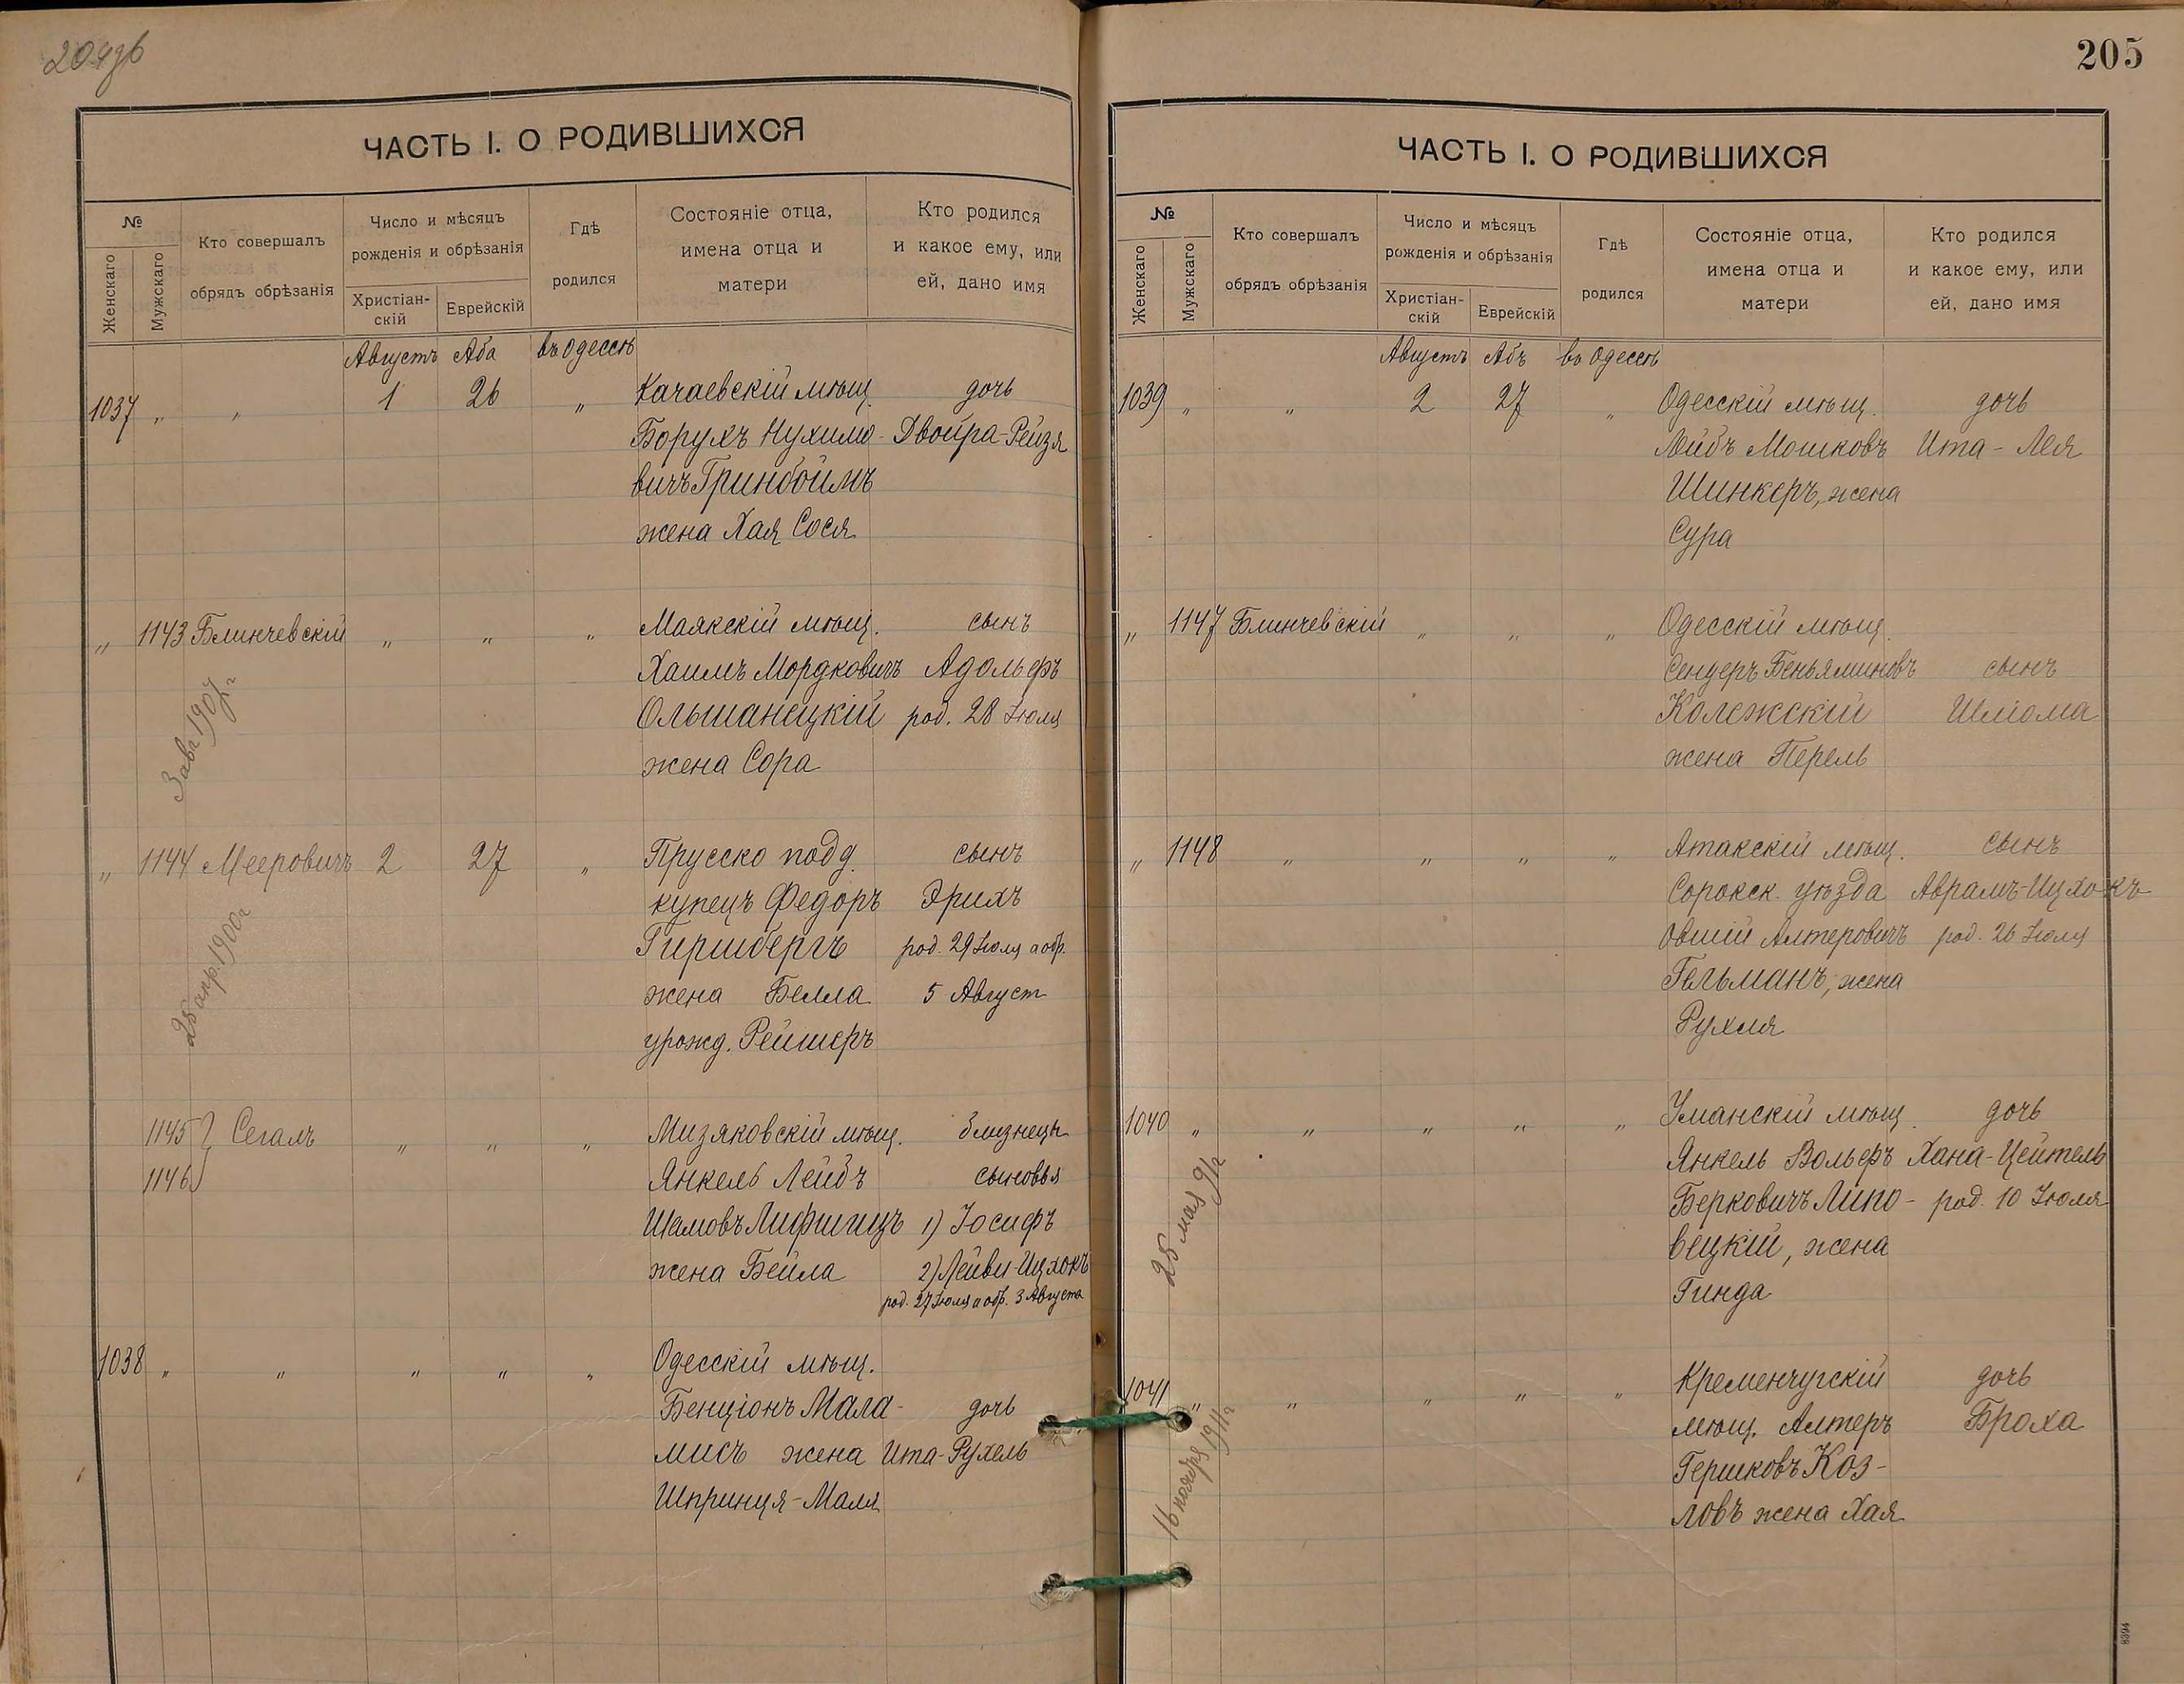 204об
ЧАСТЬ I. О РОДИВШИХСЯ
№
Женскаго
Мужскаго
Кто совершалъ
обрядъ обрѣзанія
Число и мѣсяцъ
рожденія и обрѣзанія
Христіан-
скій
Еврейскій
Гдѣ
родился
Состояніе отца,
имена отца и
матери
Кто родился
и какое ему, или
ей, дано имя
Августъ Аба въ Одессѣ
1037 „ „ 1 26 „ Качаевскій мѣщ. дочь
Борухъ Нухимо- Двойра-Рейзя
вичъ Гринбоймъ
жена Хая Сося
„ 1143 Блинчевскій „ „ „ Маякскій мѣщ. сынъ
Хаимъ Мордковичъ Адольфъ
Ольшанецкій род. 28 Іюля
жена Сора
3 авг 1907 г
„ 1144 Мееровичъ 2 27 „ Прусско подд. сынъ
купецъ Федоръ Эрихъ
Гиршбергъ род. 29 Іюля а обр.
жена Белла 5 Август
урожд. Рейшеръ
25 апр. 1900 г
1145 Сегалъ „ „ „ Мизяковскій мѣщ. близнецы
1146 Янкель Лейбъ сыновья
Шамовъ Лифшицъ 1) Іосифъ
жена Бейла 2) Лейви-Ицхокъ
род. 27 Іюля а обр. 3 Августа
1038 „ „ „ „ „ Одесскій мѣщ.
Бенціонъ Мала- дочь
мисъ жена Ита-Рухель
Шпринця-Маля
205
ЧАСТЬ I. О РОДИВШИХСЯ
№
Женскаго
Мужскаго
Кто совершалъ
обрядъ обрѣзанія
Число и мѣсяцъ
рожденія и обрѣзанія
Христіан-
скій
Еврейскій
Гдѣ
родился
Состояніе отца,
имена отца и
матери
Кто родился
и какое ему, или
ей, дано имя
Августъ Абъ въ Одессѣ
1039 „ „ 2 27 „ Одесскій мѣщ. дочь
Лейбъ Мошковъ Ита-Лея
Шинкеръ, жена
Сура
„ 1147 Блинчевскій „ „ „ Одесскій мѣщ.
Сендеръ Беньяминовъ сынъ
Колежскій Шліома
жена Перель
„ 1148 „ „ „ „ Атакскій мѣщ. сынъ
Сорокск. уѣзда Аврамъ-Ицхокъ
Овшій Алтеровичъ род. 26 Іюля
Гельманъ, жена
Рухля
1040 „ „ „ „ „ Уманскій мѣщ. дочь
Янкель Вольфъ Хана-Цейтель
Берковичъ Липо- род. 10 Іюля
вецкій, жена
Гинда
25 мая 91 г
1041 „ „ „ „ „ Кременчугскій дочь
мѣщ. Алтеръ Броха
Гершковъ Коз-
ловъ жена Хая
16 ноября 1911 г
8394